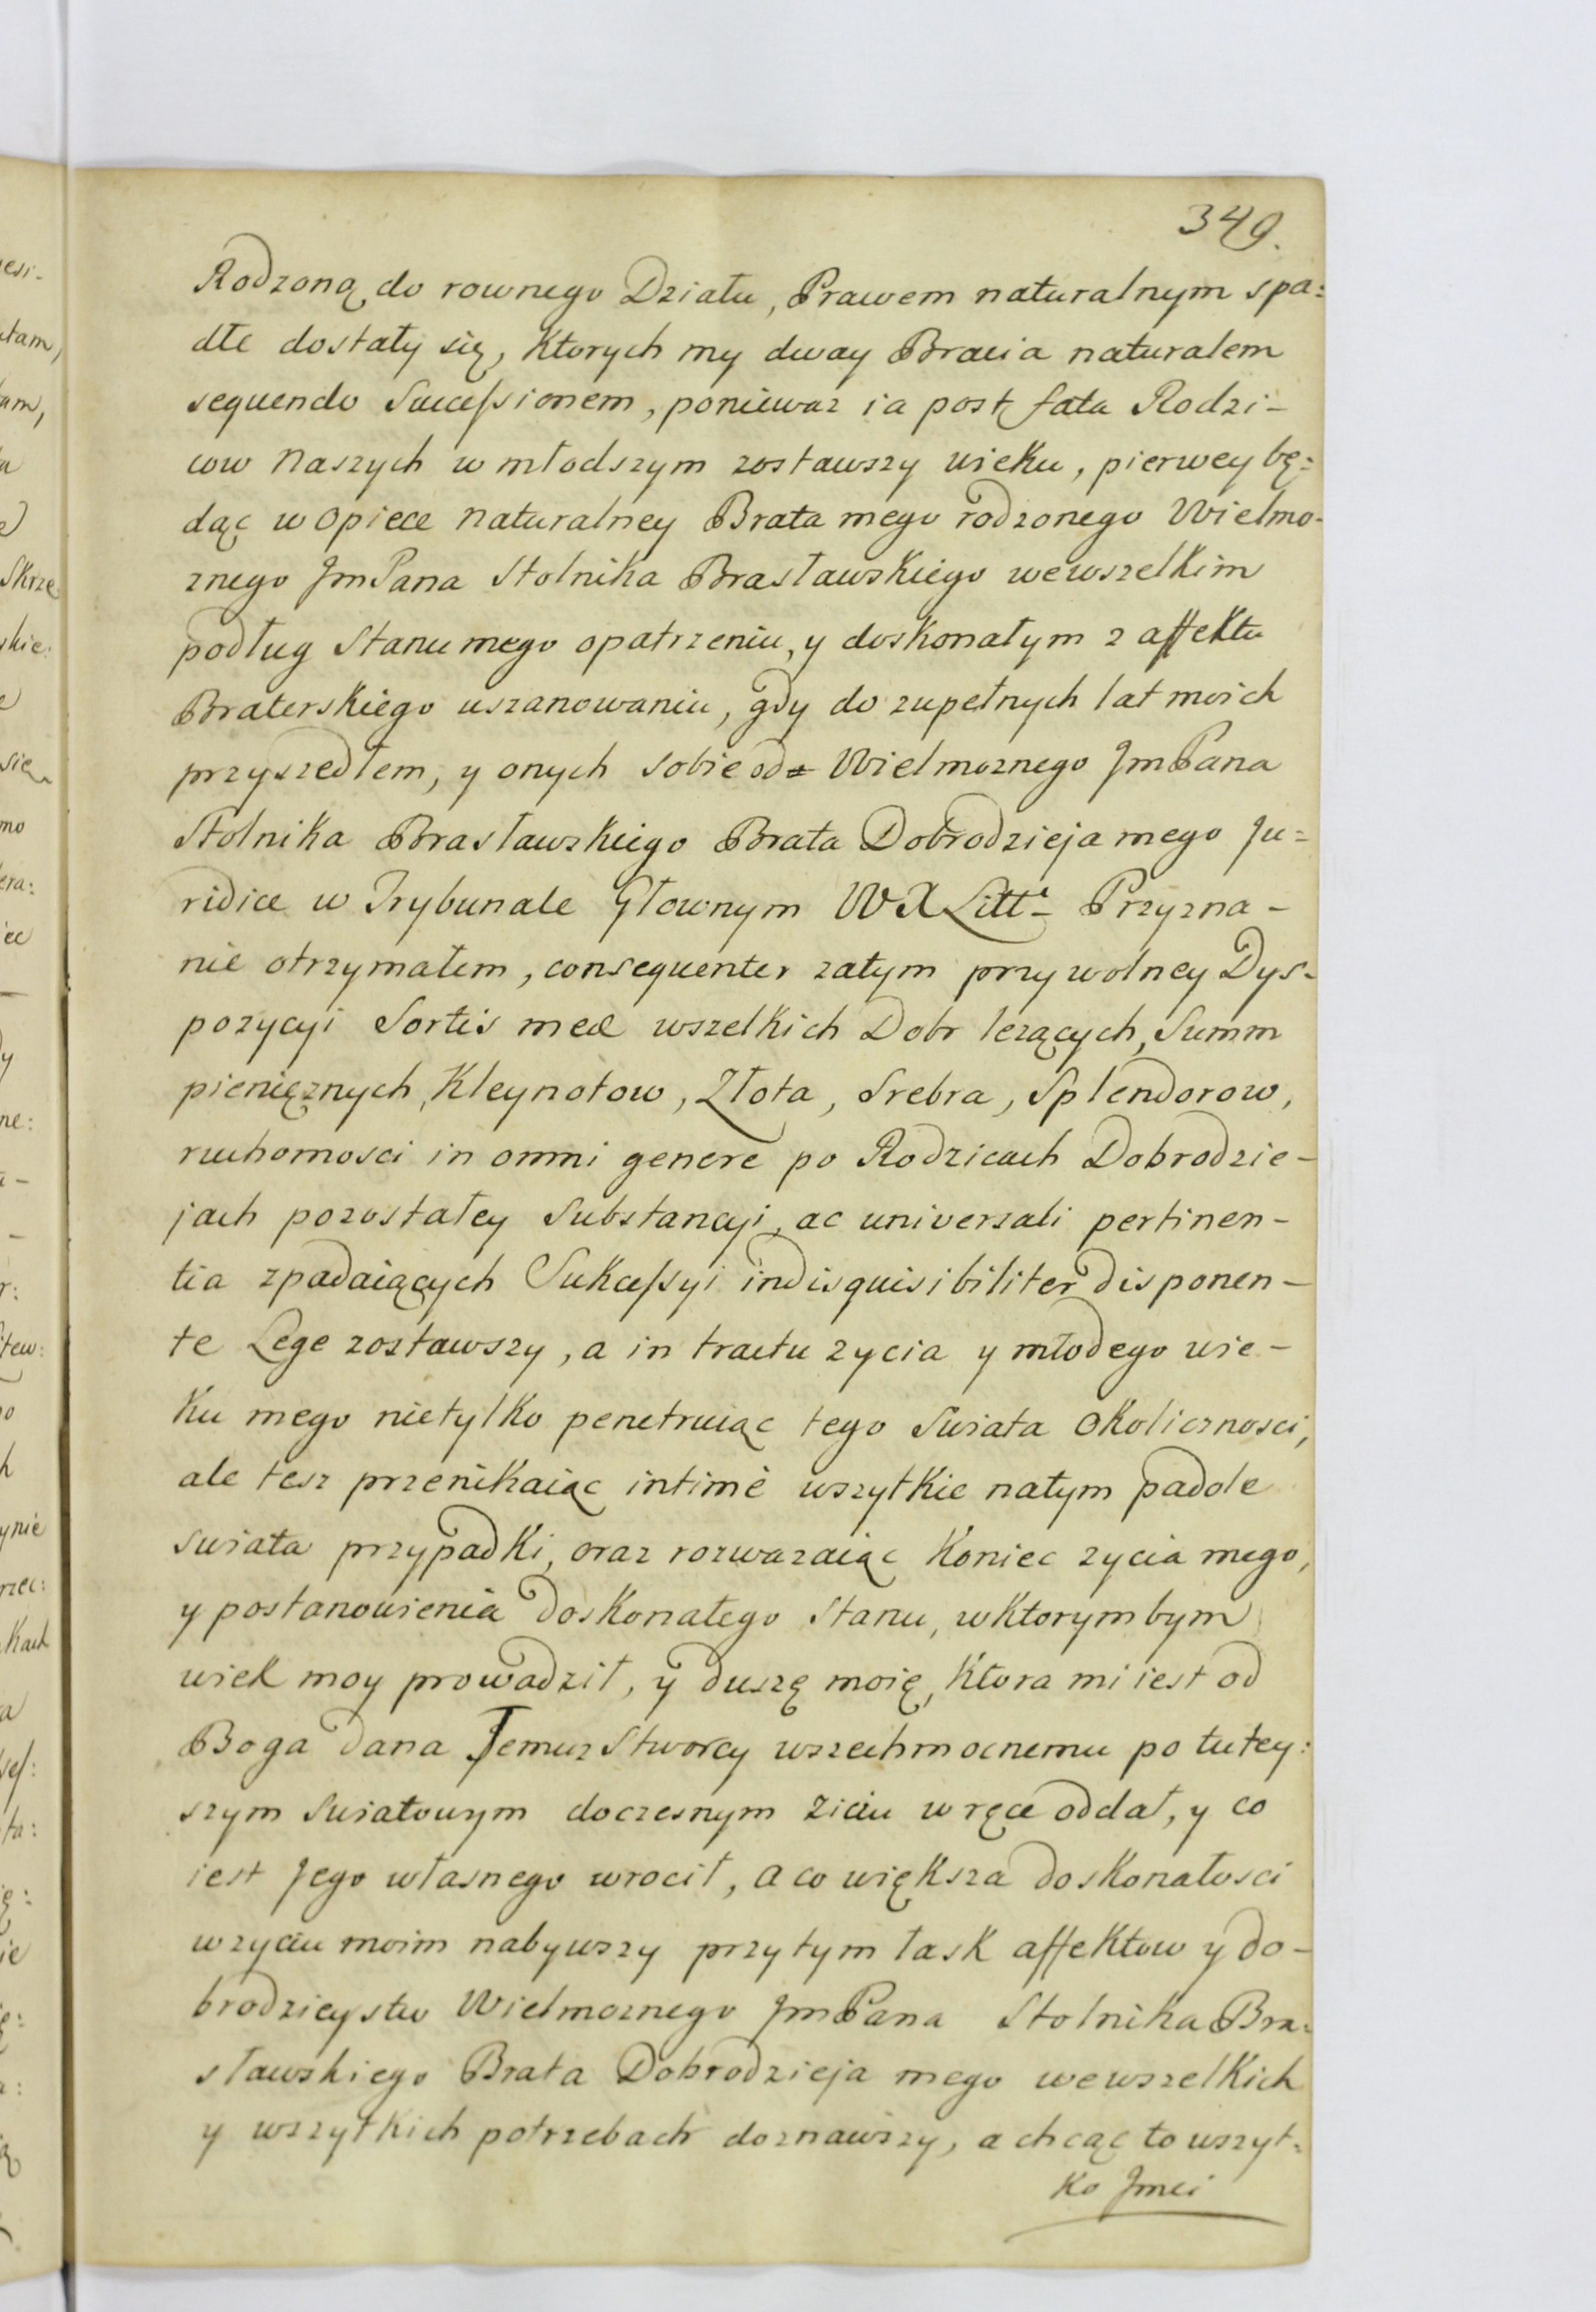 349.
Rodzoną do rownego Działu, Prawem naturalnym spa:
dłe dostały się, Ktorych my dway Bracia naturalem
sequendo Successionem, poniewaz ia post fata Rodzi-
cow Naszych w młodszym zostawszy wieku, pierwey bę:
dąc w opiece naturalney Brata mego rodzonego Wielmo-
znego JmPana Stolnika Brasławskiego wewszelkim
podług Stanu mego opatrzeniu, y doskonałym z affektu
Braterskiego uszanowaniu, gdy do zupełnych lat moich
przyszedłem, y onych sobie od Wielmoznego JmPana
Stolnika Brasławskiego Brata Dobrodzieja mego Ju=
ridice w Trybunale Głownym W X Litt: Przyzna-
nie otrzymałem, consequenter zatym przy wolney Dys-
pozycyi Sortis meae wszelkich Dobr lezących, Summ
pienięznych, Kleynotow, Złota, Srebra, Splendorow,
ruchomosci in omni genere po Rodzicach Dobrodzie-
jach pozostałey Substancyi, ac universali pertinen-
tia zpadaiących Sukcessyi indisquisibiliter disponen-
te Lege zostawszy, a in tractu zycia y młodego wie-
Ku mego nietylko penetruiąc tego Swiata Okolicznosci,
ale tesz przenikaiąc intimè wszytkie natym padole
swiata przypadki, oraz rozwazaiąc Koniec zycia mego,
y postanowienia doskonałego Stanu, wktorym bym
wiek moy prowadził, y duszę moię, Ktora mi iest od
Boga dana Jemuz Stworcy wszechmocnemu po tutey:
szym Swiatowym doczesnym Ziciu w ręce oddał, y co
iest Jego własnego wrocił, a co większa doskonałosci
wzyciu moim nabywszy przytym łask affektow y do-
brodzieystw Wielmoznego JmPana Stolnika Bra:
sławskiego Brata Dobrodzieja mego wewszelkich
y wszytkich potrzebach doznawszy, a chcąc to wszyt-
ko Jmci